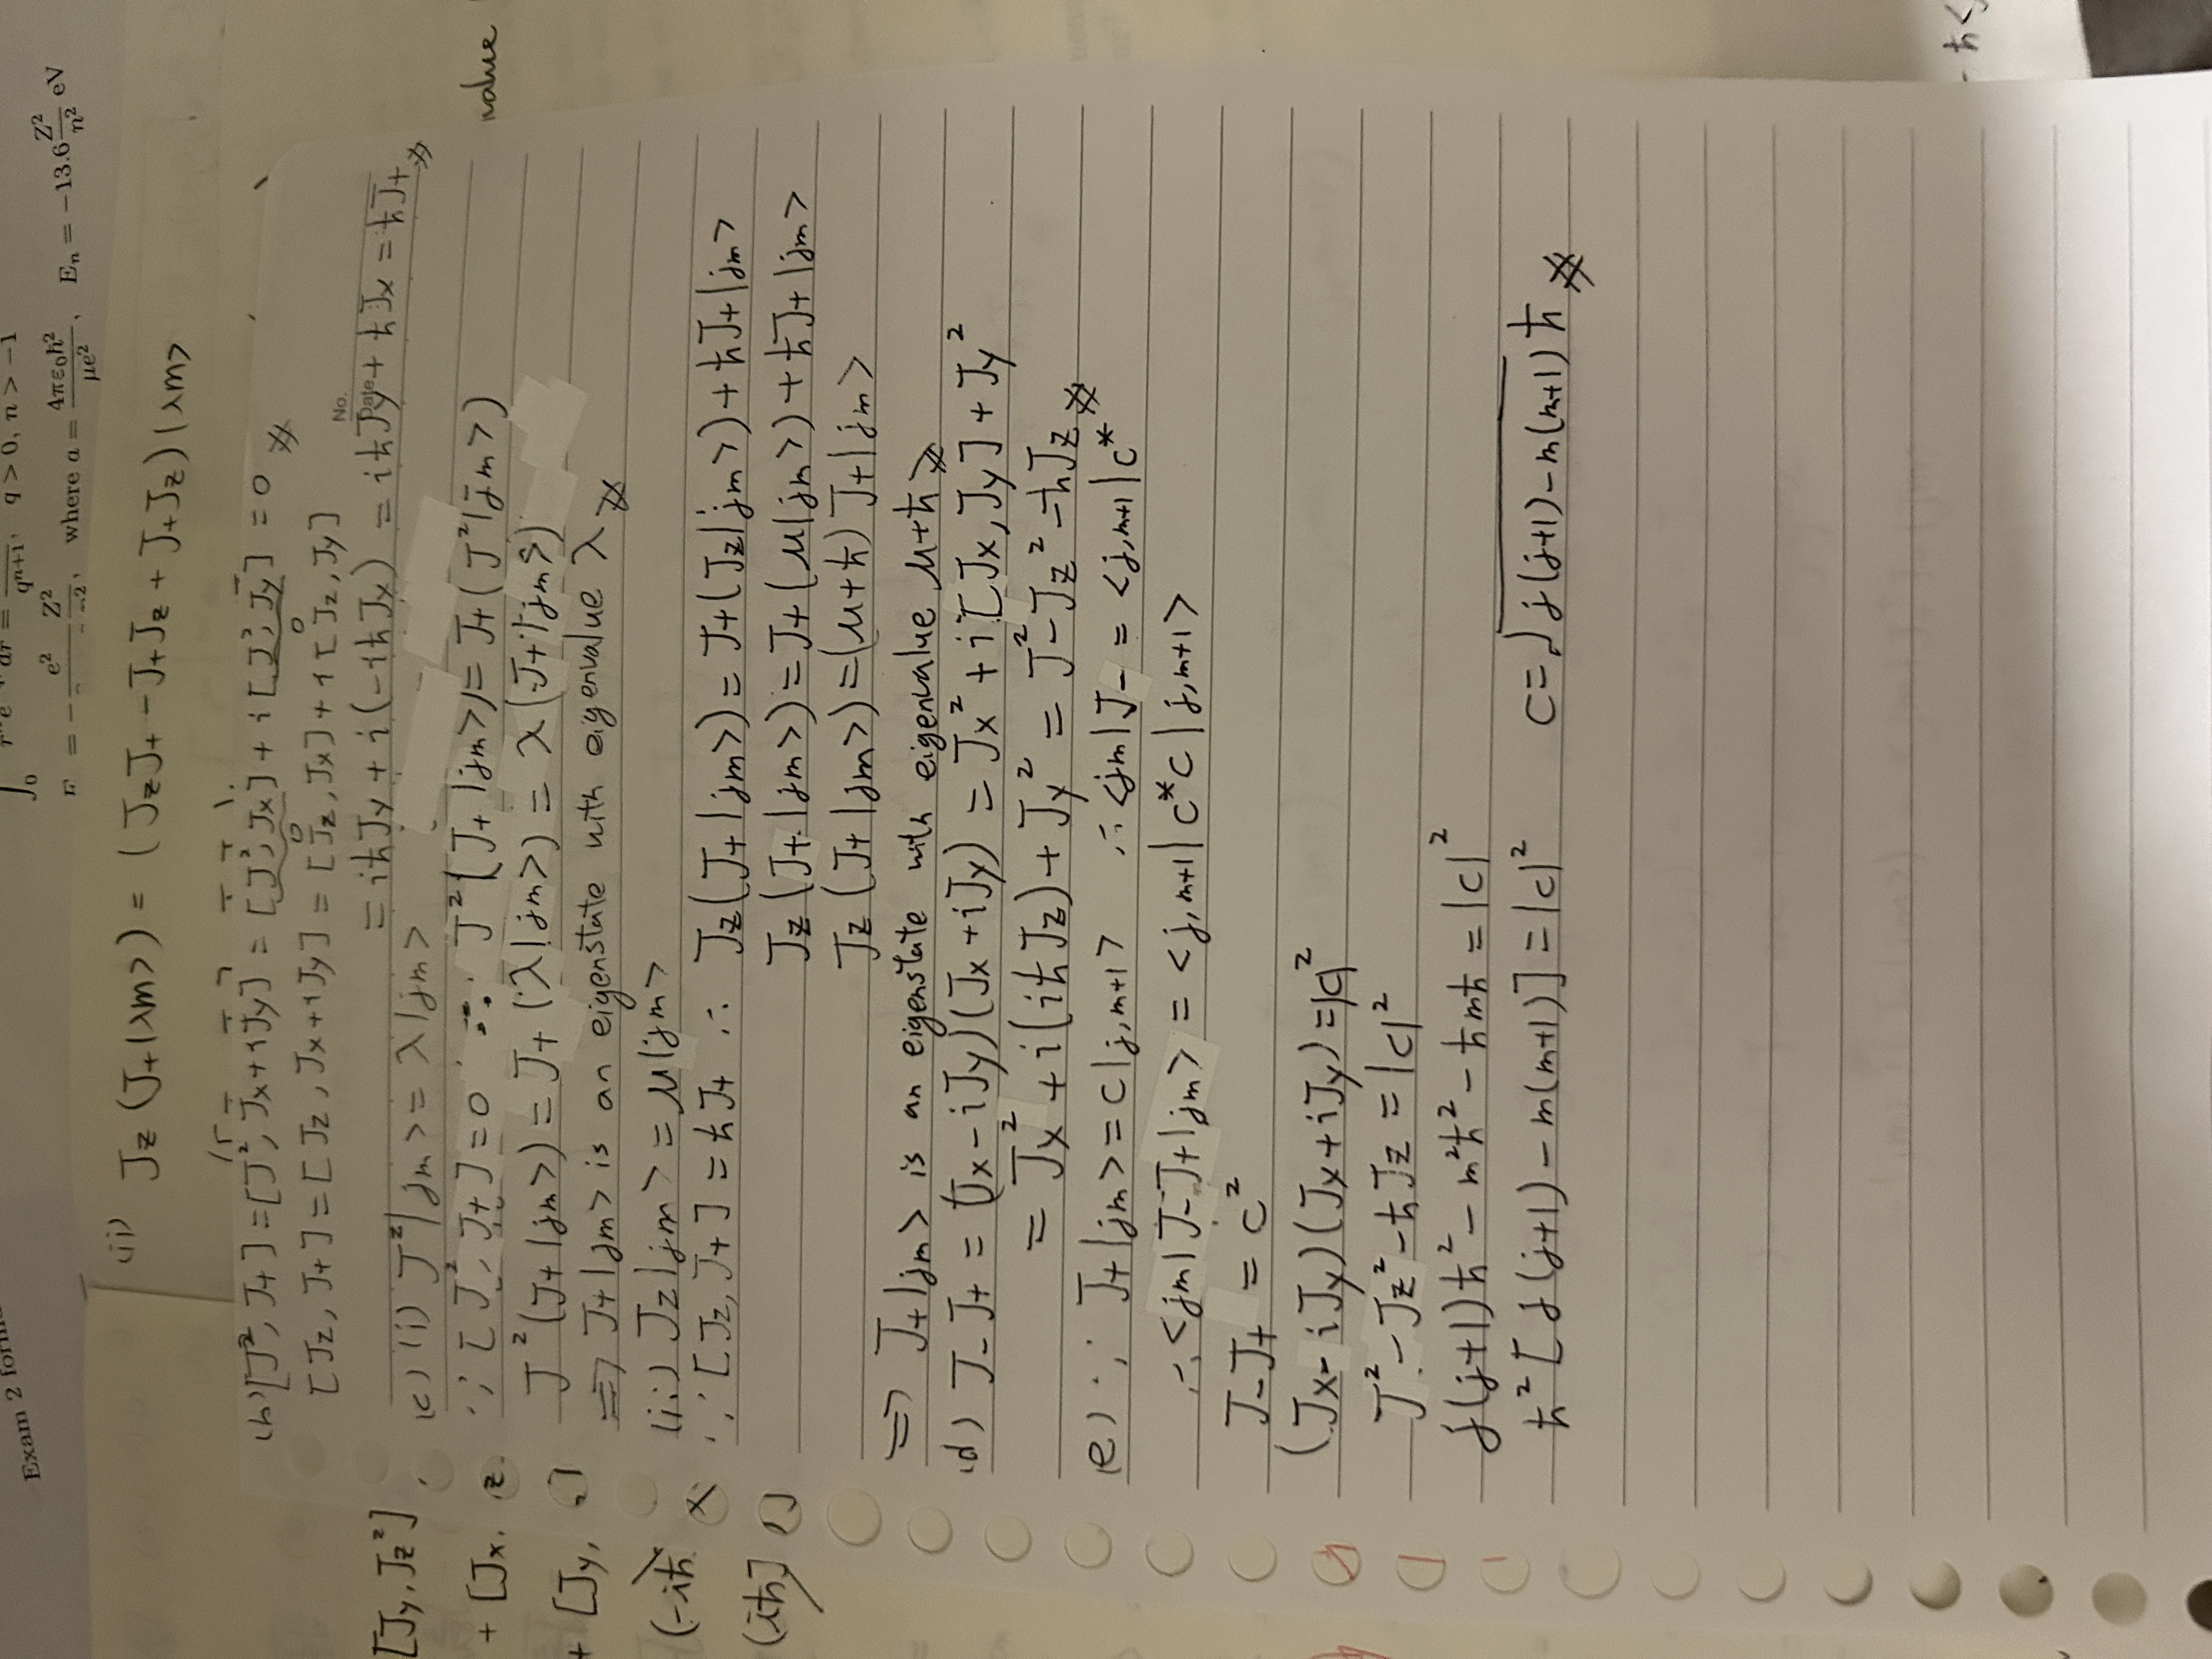 Exam 2
∫₀ rⁿe dr = / qⁿ⁺¹, q > 0, n > −1
= − e² Z² / n², where a = 4πε₀ħ² / μe², Eₙ = −13.6 Z²/n² eV
(ii) Jz (J+|λm>) = (JzJ+ − J+Jz + J+Jz)|λm>
(b) [J², J+] = [J², Jx+iJy] = [J², Jx] + i[J², Jy] = 0
0 0
[Jz, J+] = [Jz, Jx+iJy] = [Jz, Jx] + i[Jz, Jy]
No.
Date
= iħJy + i(−iħJx) = iħJy + ħJx = ħJ+
[Jy, Jz²]
(c) (i) J²|jm> = λ|jm>
∵ [J², J+] = 0 ∴ J²(J+|jm>) = J+(J²|jm>)
+ [Jx, z
value
J²(J+|jm>) = J+(λ|jm>) = λ(J+|jm>)
+ [Jy, ]
⇒ J+|jm> is an eigenstate with eigenvalue λ
(ii) Jz|jm> = μ|jm>
(−iħ
∵ [Jz, J+] = ħJ+ ∴ Jz(J+|jm>) = J+(Jz|jm>) + ħJ+|jm>
(iħ]
Jz(J+|jm>) = J+(μ|jm>) + ħJ+|jm>
Jz(J+|jm>) = (μ+ħ) J+|jm>
⇒ J+|jm> is an eigenstate with eigenvalue μ+ħ
(d) J−J+ = (Jx−iJy)(Jx+iJy) = Jx² + i[Jx, Jy] + Jy²
= Jx² + i(iħJz) + Jy² = J² − Jz² − ħJz
(e) ∵ J+|jm> = c|j,m+1> ∴ <jm|J− = <j,m+1|c*
∴ <jm|J−J+|jm> = <j,m+1|c*c|j,m+1>
J−J+ = c²
(Jx−iJy)(Jx+iJy) = |c|²
J² − Jz² − ħJz = |c|²
j(j+1)ħ² − m²ħ² − ħmħ = |c|²
ħ²[j(j+1) − m(m+1)] = |c|² c = √j(j+1)−m(m+1) ħ
− ħ<